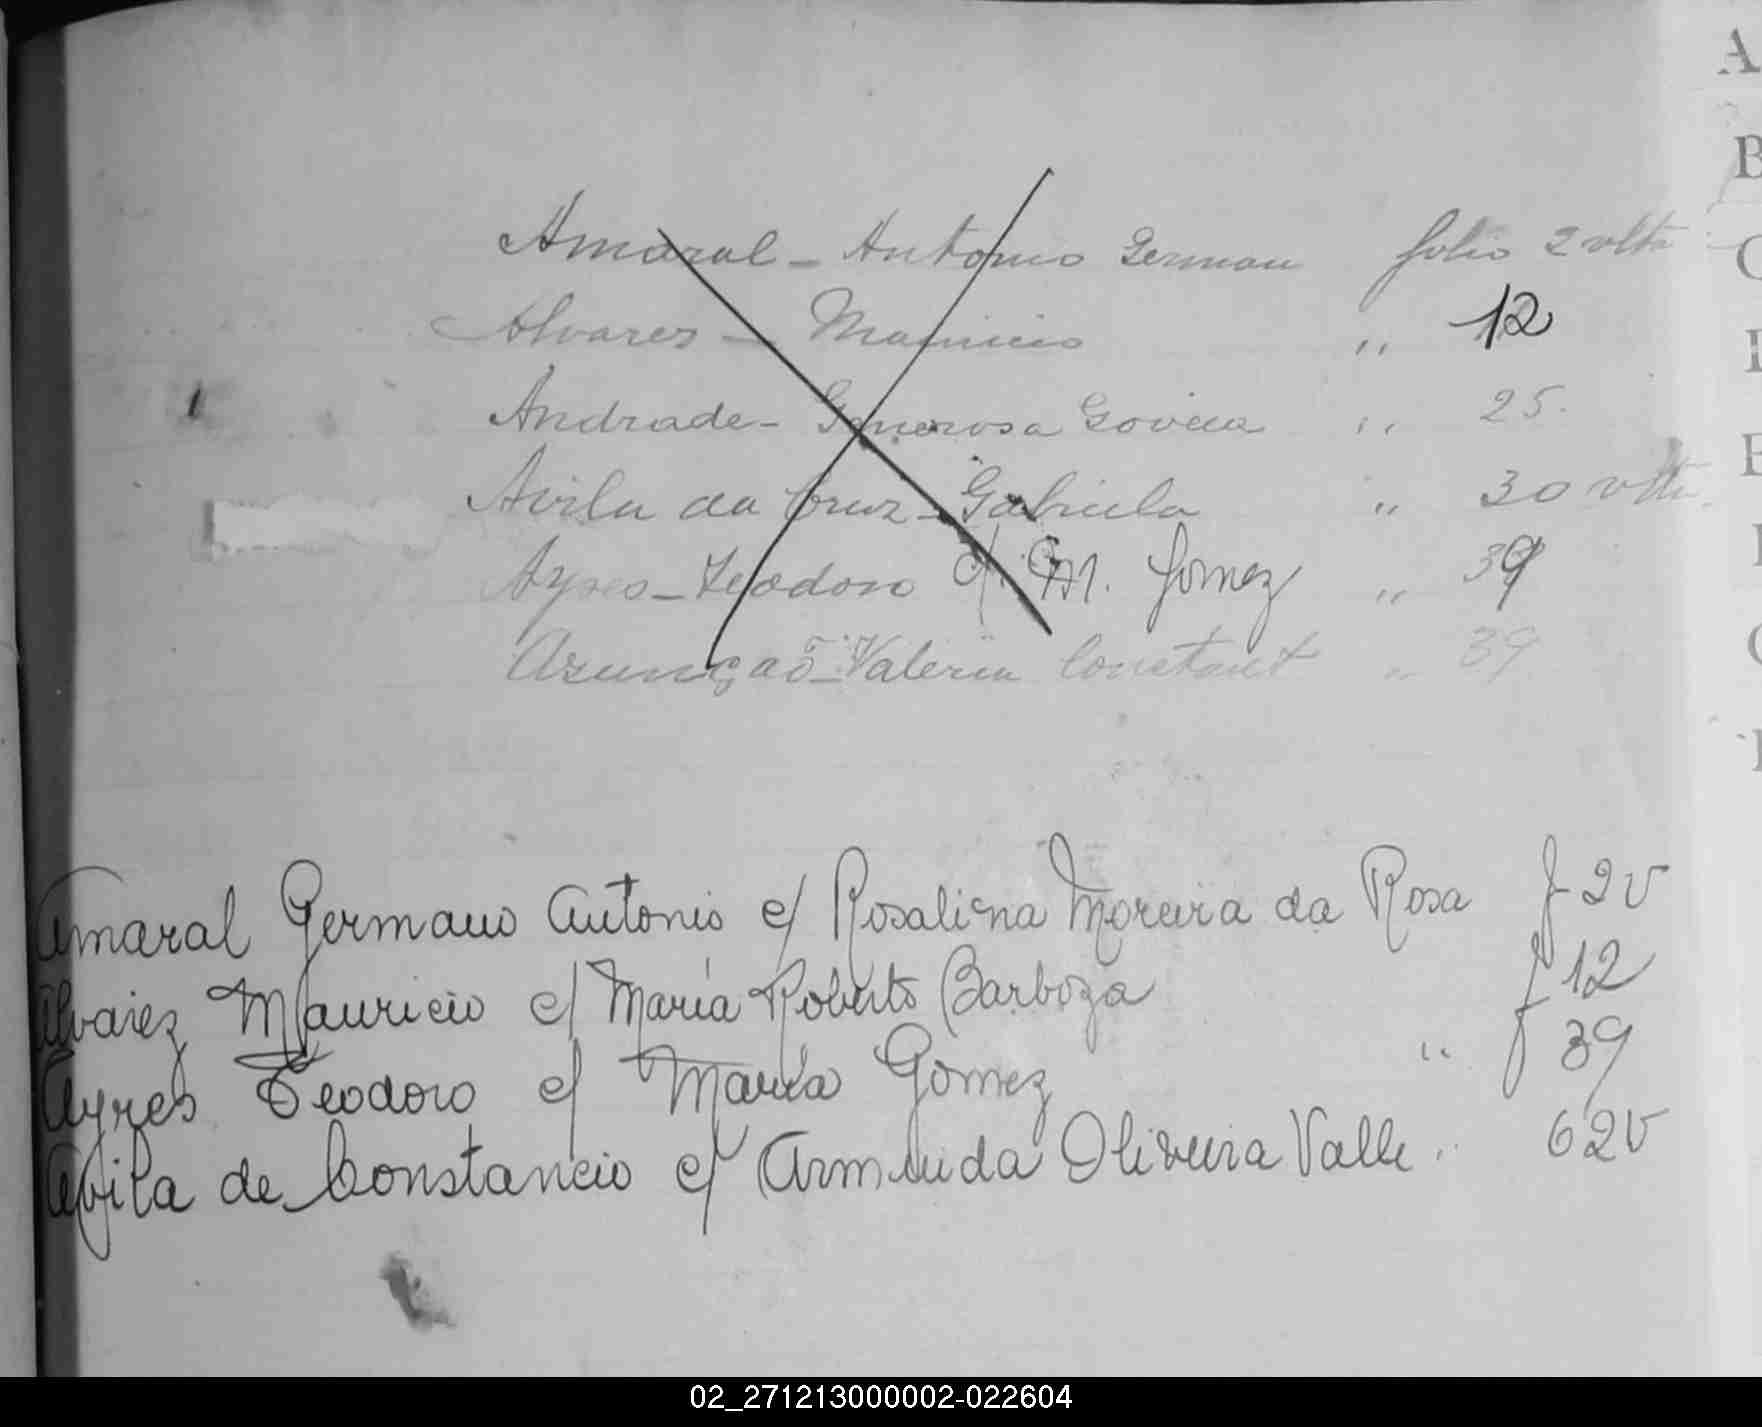 Amaral - Antonio German folio 2 vlta
Alvares - Mauricio " 12
Andrade - Generosa Goveia " 25.
Avila da Cruz - Gabriela " 30 vlta.
Ayres - Teodoro c/. M. Gomez " 39
Asunção - Valeria Constant " 39
Amaral Germano Antonio c/ Rosalina Moreira da Rosa f 2v
Alvarez Mauricio c/ María Roberto Barboza f 12
Ayres Teodoro c/ María Gomez " f 39
Avila de Constancio c/ Arminda Oliveira Valle " 62v
A
B
C
E
02_271213000002-022604